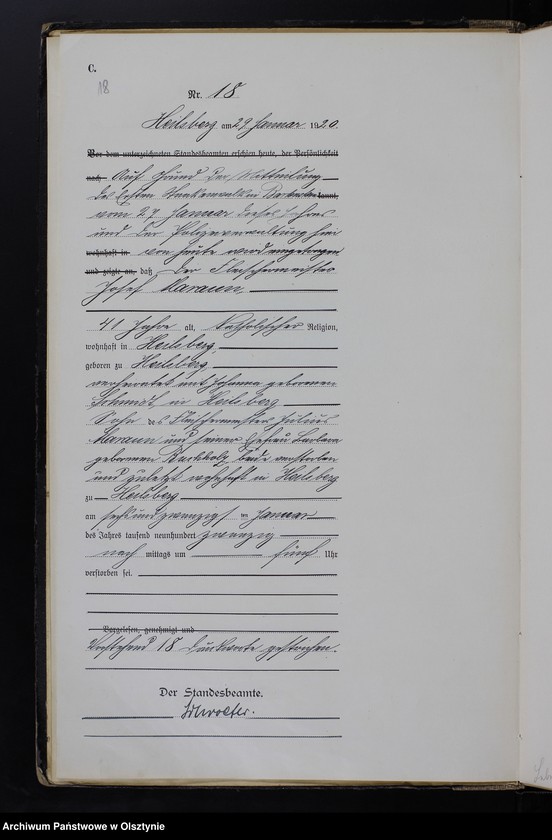 C.
18
Nr. 18
Heilsberg am 29 Januar 1920.
Vor dem unterzeichneten Standesbeamten erschien heute, der Persönlichkeit
nach Auf Grund der Mitteilung
des Ersten kannt,
vom 27 Januar dieses Jahres
und der Polizeiverwaltung hier
wohnhaft in von heute wird eingetragen
und zeigte an, daß der Fleischermeister
Josef Maraun,
41 Jahre alt, katholischer Religion,
wohnhaft in Heilsberg,
geboren zu Heilsberg,
verheiratet mit Johanna geborenen
Schmidt, in Heilsberg
Sohn des Fleischermeisters Julius
Maraun und seiner Ehefrau Barbara
geborenen Buchholz beide verstorben
und zuletzt wohnhaft in Heilsberg
zu Heilsberg
am sechsundzwanzigsten Januar
des Jahres tausend neunhundert zwanzig
nach mittags um fünf Uhr
verstorben sei.
Vorgelesen, genehmigt und
Vorstehend 18 Druckworte gestrichen.
Der Standesbeamte.
Archiwum Państwowe w Olsztynie